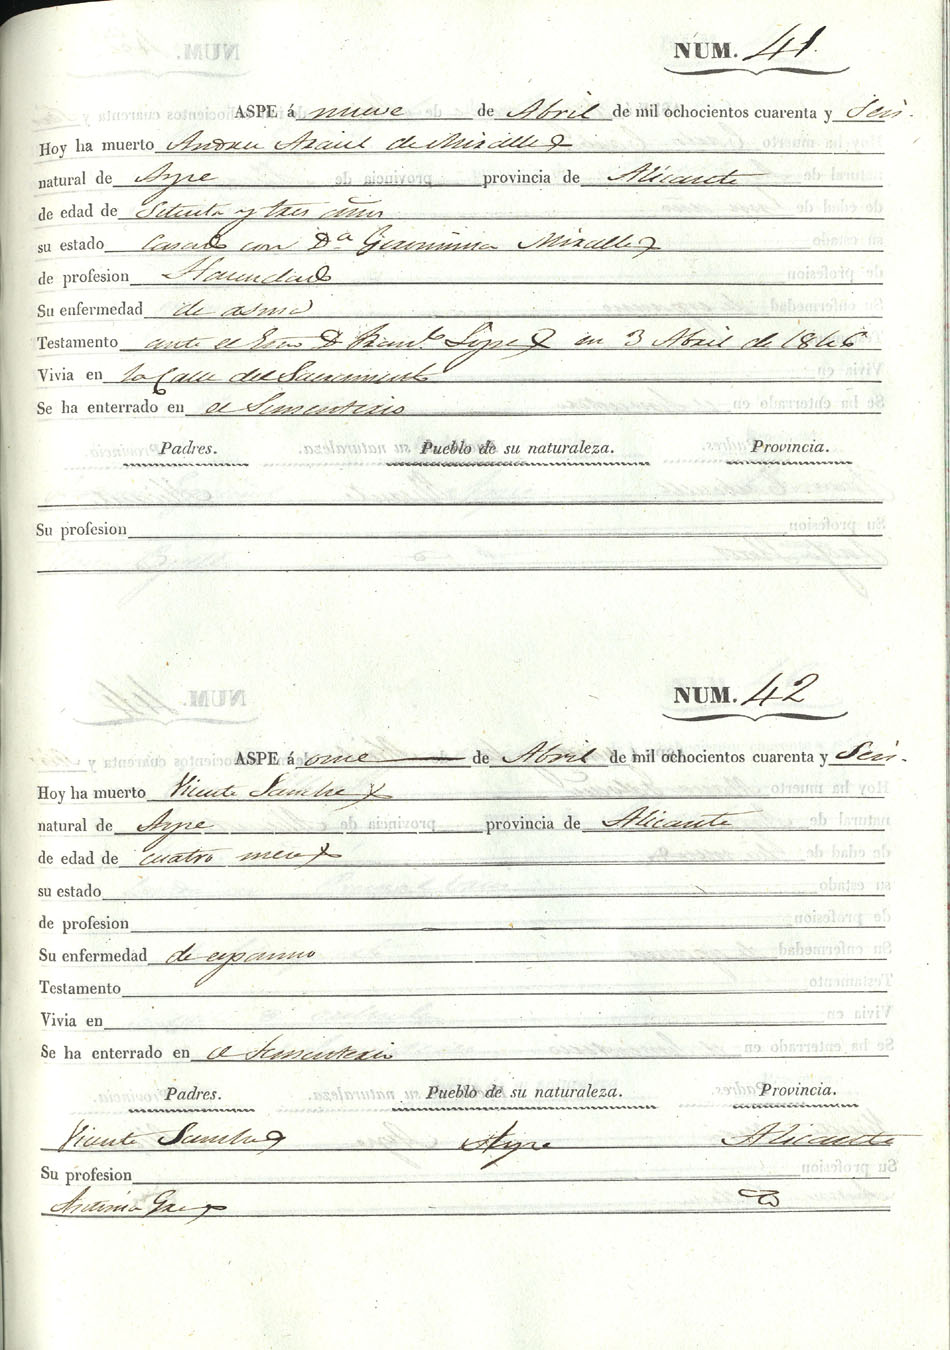 NUM. 41.
ASPE á nueve de Abril de mil ochocientos cuarenta y Seis.
Hoy ha muerto Andres de Miralles
natural de Aspe provincia de Alicante
de edad de Setenta y tres años
su estado Casado con Dª Geronima Miralles
de profesion Hacendado
Su enfermedad de asma
Testamento ante el Esno D. Franco. Lopez en 3 Abril de 1846
Vivia en la Calle del Sacramento
Se ha enterrado en el Sementerio
Padres. Pueblo de su naturaleza. Provincia.
Su profesion
NUM. 42
ASPE á once de Abril de mil ochocientos cuarenta y Seis.
Hoy ha muerto Vicente Sanches
natural de Aspe provincia de Alicante
de edad de cuatro meses
su estado
de profesion
Su enfermedad de espasmo
Testamento
Vivia en
Se ha enterrado en el Sementerio
Padres. Pueblo de su naturaleza. Provincia.
Vicente Sanches Aspe Alicante
Su profesion
Antonia